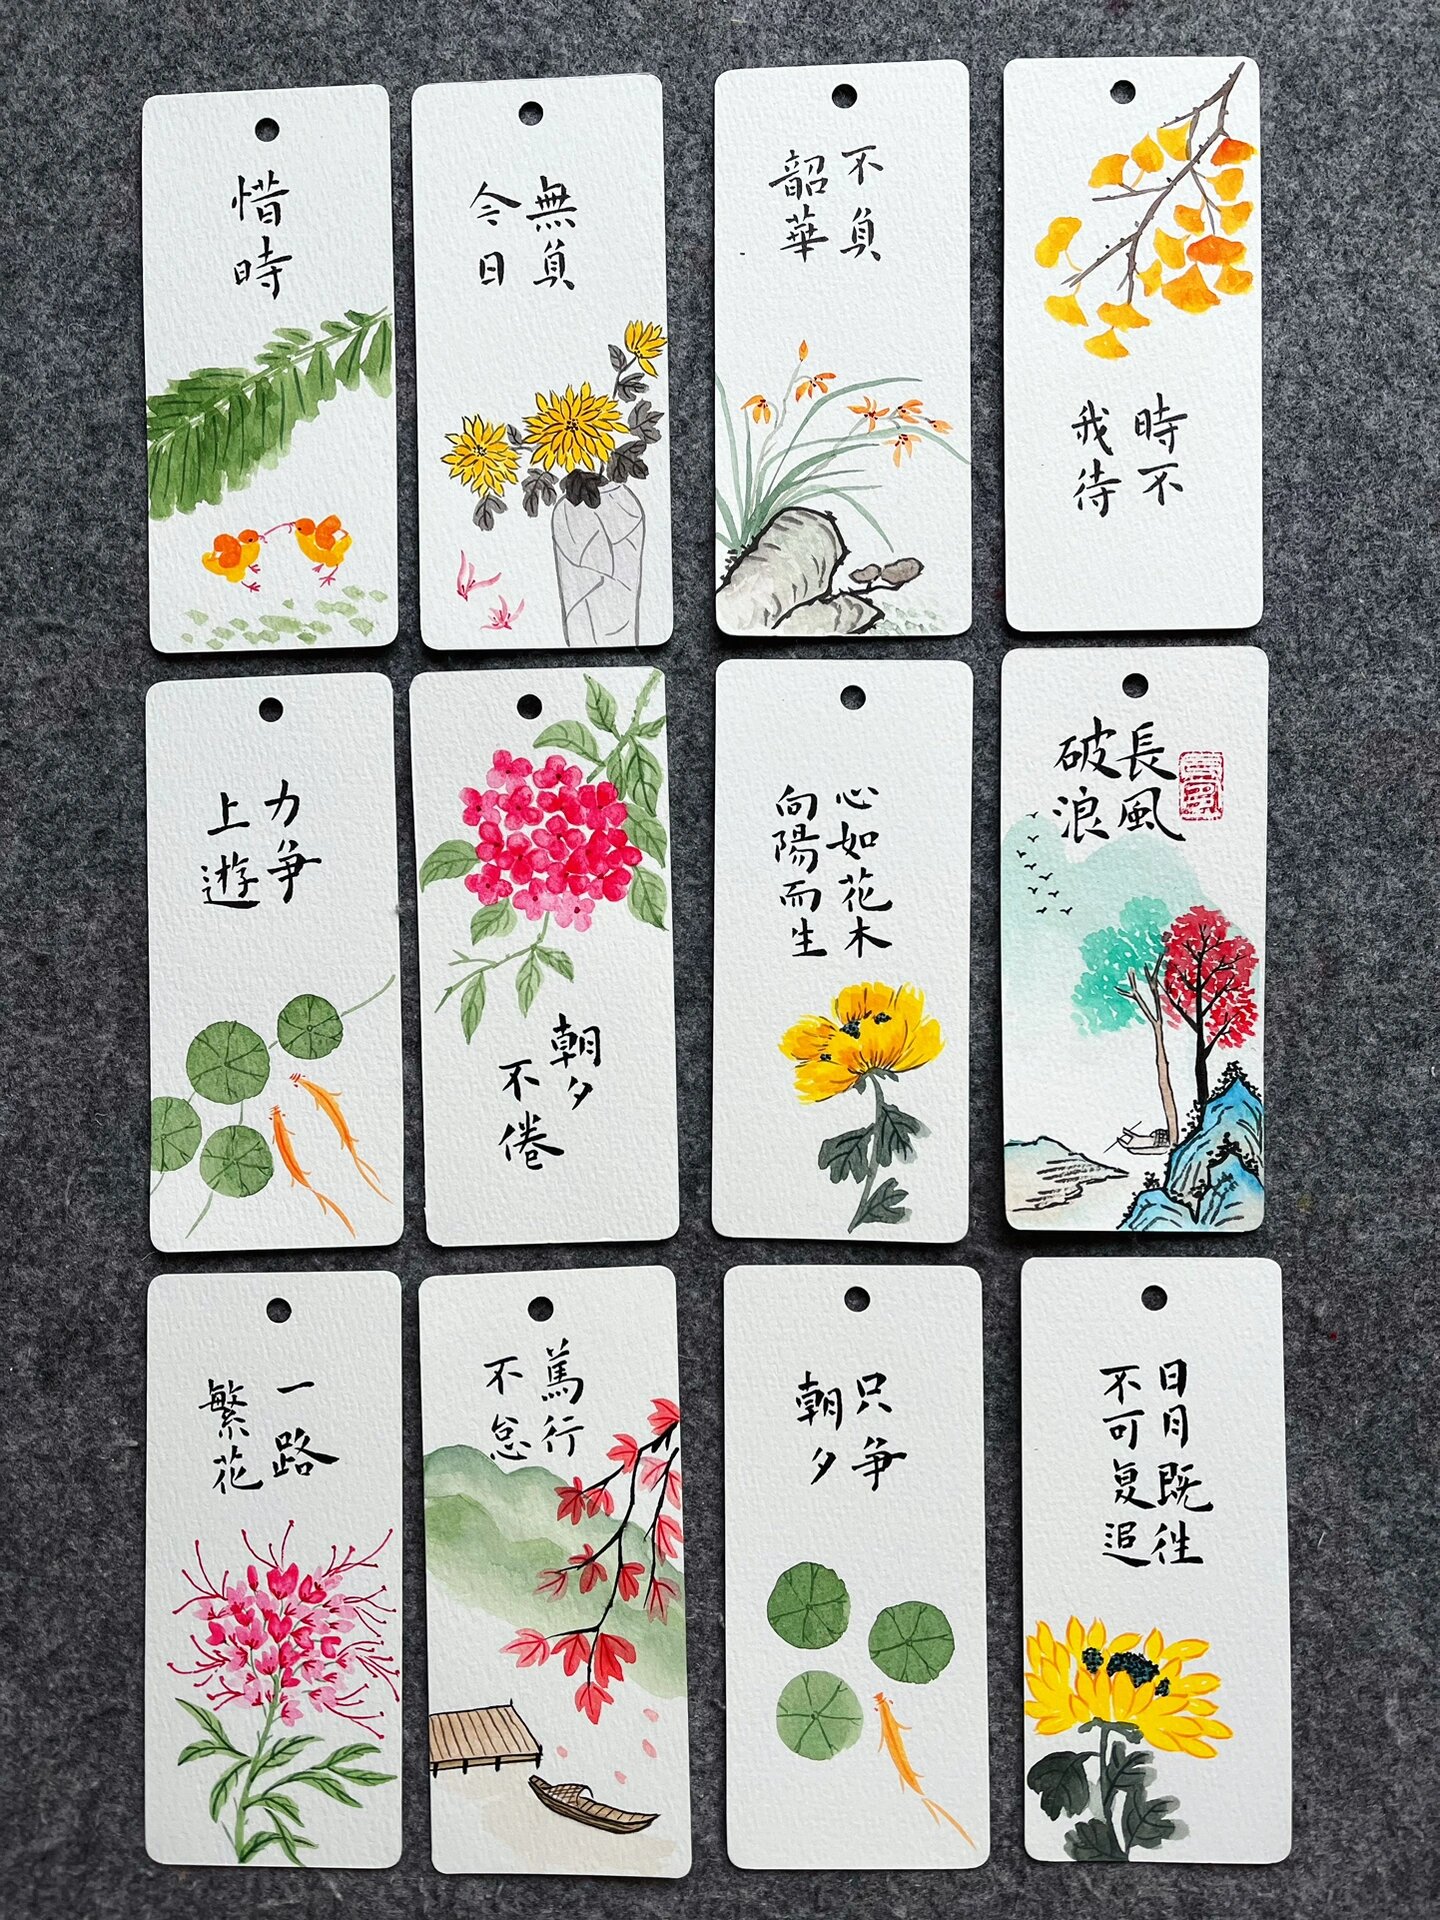 惜時
無負
今日
不負
韶華
時不
我待
力争
上遊
朝夕
不倦
心如花木
向陽而生
長風
破浪
一路
繁花
篤行
不怠
只争
朝夕
日月既往
不可复追